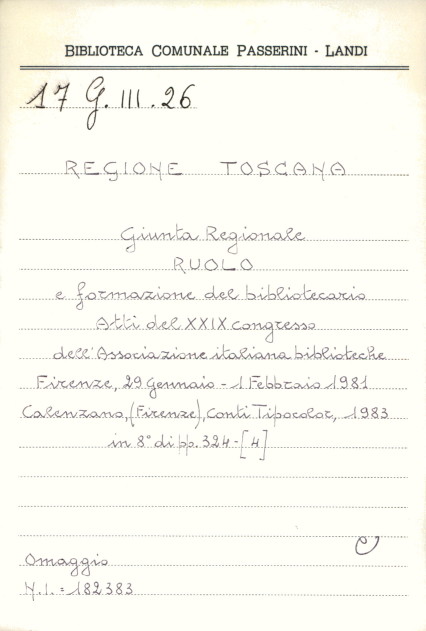 BIBLIOTECA COMUNALE PASSERINI - LANDI
17 G. III. 26
REGIONE TOSCANA
Giunta Regionale
RUOLO
e formazione del bibliotecario
Atti del XXIX congresso
dell'Associazione italiana biblioteche
Firenze, 29 Gennaio - 1 Febbraio 1981
Calenzano, (Firenze), Conti Tipocolor, 1983
in 8° di pp. 324-[4]
Omaggio
N.I. = 182383